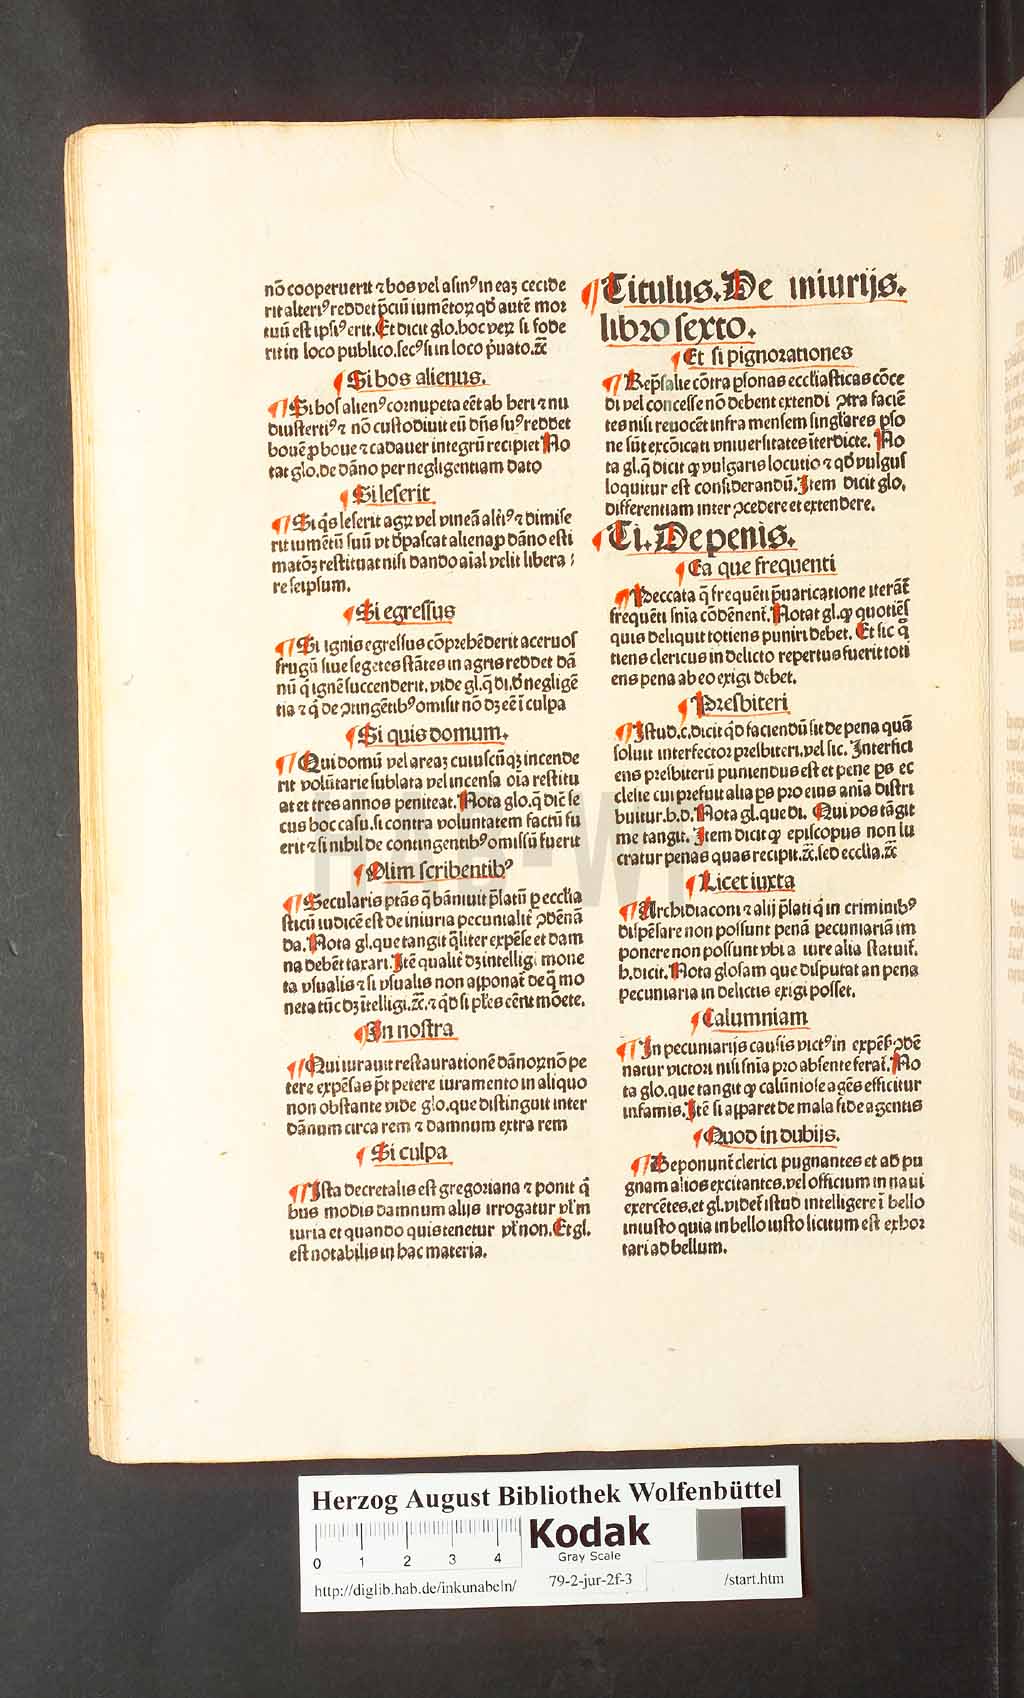 nō cooperuerit ⁊ bos vel asinꝰ in eaꝫ cecide
rit alteriꝰ reddet p̄ciū iumētoꝝ qd̓ autē mor
tuū est ipsiꝰ erit. Et dicit glo. hoc veꝝ si fode
rit in loco publico. secꝰ si in loco p̓uato. ⁊c̄
¶ Si bos alienus.
¶ Si bos alienꝰ cornupeta eēt ab heri ⁊ nu
diustertiꝰ ⁊ nō custodiuit eū dn̄s suꝰ reddet
bouē ꝓ boue ⁊ cadauer integrū recipiet No
tat glo. de dāno per negligentiam dato
¶ Si leserit
¶ Si q̓s leserit agꝝ vel vineā altiꝰ ⁊ dimise
rit iumētū suū vt d̓pascat aliena ꝓ dāno esti
matōꝫ restituat nisi dando aīal velit libera ⸗
re seipsum.
¶ Si egressus
¶ Si ignis egressus cōprehēderit aceruos
frugū siue segetes stātes in agris reddet dā
nū q̓ ignē succenderit. vide gl. q̄ di. d̓ negligē
tia ⁊ q̓ de ꝯtingētibꝰ omisit nō dꝫ eē ī culpa
¶ Si quis domum.
¶ Qui domū vel areaꝫ cuiuscūqꝫ incende
rit volūtarie sublata vel incensa oīa restitu
at et tres annos peniteat. Nota glo. q̄ dic̄ se
cus hoc casu. si contra voluntatem factū fu
erit ⁊ si nihil de contingentibꝰ omissū fuerit
¶ Olim scribentibꝰ
¶ Secularis ptās q̄ bāniuit p̄latū ꝑ ecclīa
sticū iudicē est de iniuria pecunialit̄ ꝯdēnā
da. Nota gl. que tangit q̄liter expēse et dam
na debēt taxari. Itē qualit̄ dꝫ intelligi mone
ta vsualis ⁊ si vsualis non apponat̄ de q̄ mo
neta tūc dꝫ ītelligi. ⁊c̄. ⁊ qd̓ si pl̓es cēnt mōete.
¶ In nostra
¶ Qui iurauit restaurationē dānoꝝ nō pe
tere expēsas pt̄ petere iuramento in aliquo
non obstante vide glo. que distinguit inter
dānum circa rem ⁊ damnum extra rem
¶ Si culpa
¶ Ista decretalis est gregoriana ⁊ ponit q̓
bus modis damnum alijs irrogatur vl̓ in
iuria et quando quis tenetur vl̓ non. Et gl.
est notabilis in hac materia.
¶ Titulus. De iniurijs.
libro sexto.
¶ Et si pignorationes
¶ Rep̄salie cōtra ꝑsonas ecclīasticas cōce
di vel concesse nō debent extendi ꝯtra faciē
tes nisi reuocēt infra mensem singl̓ares ꝑso
ne sūt excōicati vniuersitates īterdicte. No
ta gl. q̄ dicit ꝙ vulgaris locutio ⁊ qd̓ vulgus
loquitur est considerandū. Item dicit glo.
differentiam inter ꝓcedere et extendere.
¶ Ti. De penis.
¶ Ea que frequenti
¶ Peccata q̄ frequēti p̄uaricatione iterāt̄
frequēti sn̄ia cōdēnent̄. Notat gl. ꝙ quotiēs
quis deliquit totiens puniri debet. Et sic q̊
tiens clericus in delicto repertus fuerit toti
ens pena ab eo exigi debet.
¶ Presbiteri
¶ Istud. c. dicit q̓d faciendū sit de pena quā
soluit interfector presbiteri. vel sic. Interfici
ens presbiterū puniendus est et pene ꝑs ec
clesie cui prefuit alia ꝑs pro eius aīa distri
buitur. h. d. Nota gl. que di. Qui vos tāgit
me tangit. Item dicit ꝙ episcopus non lu
cratur penas quas recipit. ⁊c̄. sed ecclīa. ⁊c̄
¶ Licet iuxta
¶ Archidiaconi ⁊ alij p̄lati q̓ in criminibꝰ
dispēsare non possunt penā pecuniariā im
ponere non possunt vbi a iure alia statuit̄.
h. dicit. Nota glosam que disputat an pena
pecuniaria in delictis exigi posset.
¶ Calumniam
¶ In pecuniarijs causis victꝰ in expēs̄ ꝯdē
natur victori nisi sn̄ia pro absente ferat̄. No
ta glo. que tangit ꝙ calūniose agēs efficitur
infamis. Itē si apparet de mala fide agentis
¶ Quod in dubijs.
¶ Deponunt̄ clerici pugnantes et ad pu
gnam alios excitantes. vel officium in naui
exercētes. et gl. videt̄ istud intelligere ī bello
iniusto quia in bello iusto licitum est exhor
tari ad bellum.
HAB-W
Herzog August Bibliothek Wolfenbüttel
0 1 2 3 4
Kodak
Gray Scale
http://diglib.hab.de/inkunabeln/ 79-2-jur-2f-3 /start.htm